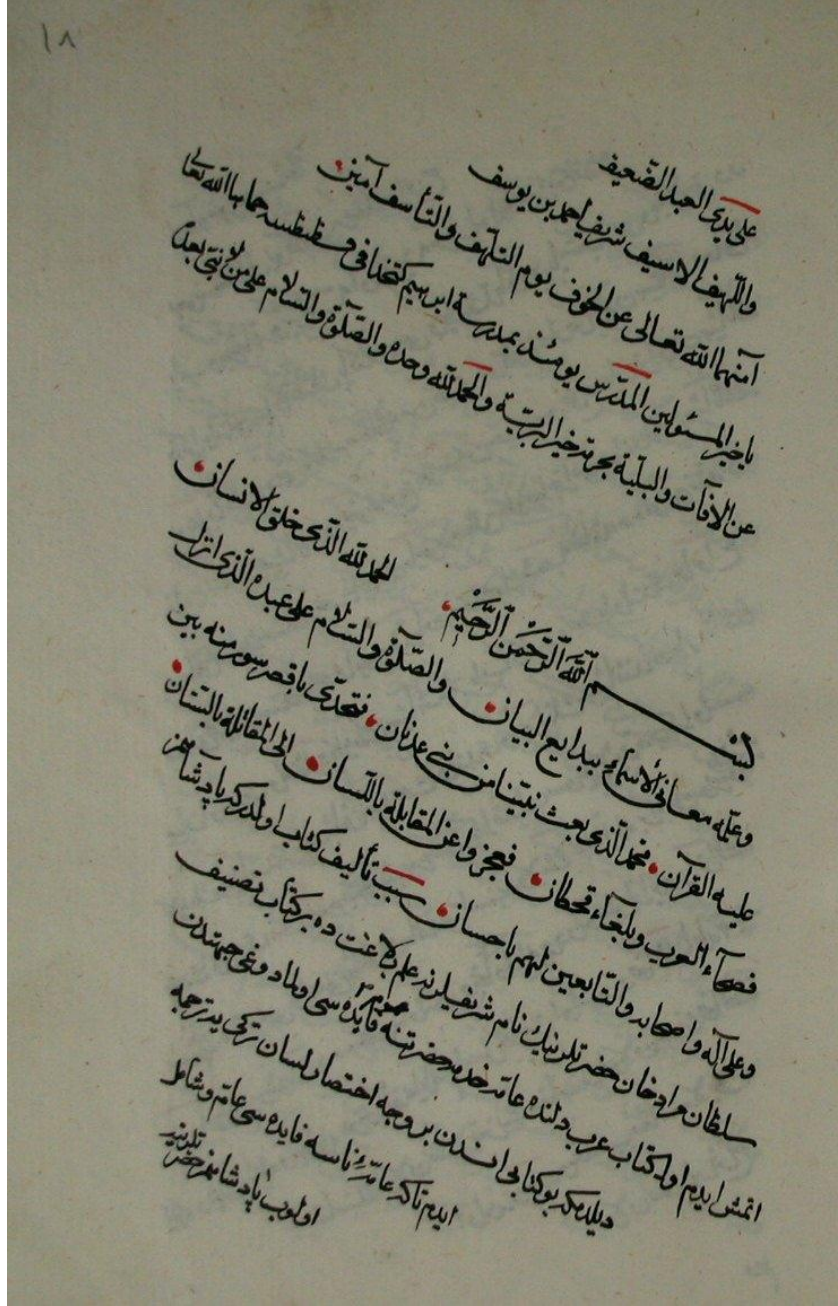 ١٨
على يدى العبد الضعيف
واللهيف الاسيف شريف احمد بن يوسف
آمنهما الله تعالى عن الخوف يوم التلهف والتأسف آمين
يا خير المسئولين المدرّس يومئذ بمدرسة ابرهيم كتخدا فى حماها الله تعالى
عن الافات والبليّة بحرمة خير البريّة والحمد لله وحده والصّلوة والسّلام على من لا نبى بعده
بسم اللّه الرّحمن الرّحيم الحمد لله الّذى خلق الانسان
وعلّمه معانى الأسماء ببدايع البيان والصّلوة والسّلام على عبده الّذى انزل
عليه القرآن محمد الّذى بعث نبيّنا من بنى عدنان فتحدّى باقصر سورة منه بين
فصحاء العرب وبلغاء قحطان فعجزوا عن المقابلة باللّسان الى المقاتلة بالسّنان
وعلى آله واصحابه والتّابعين لهم باحسان سبب تأليف كتاب اولدر كه پادشاهمز
سلطان مراد خان حضرتلرينك نام شريفلرنه علم بلاغت ده بر كتاب تصنيف
اتمش ايدم اول كتاب عرب دلنده فايده سى اولمادوغى جهتدن
ديلدم كه بو كتابى اندن بر وجه اختصار لسان تركى يه ترجمه
ايدم تا كه عامّهٔ ناسه فايده سى عام وشامل
اولوب پادشاهمز حضرتلرينه